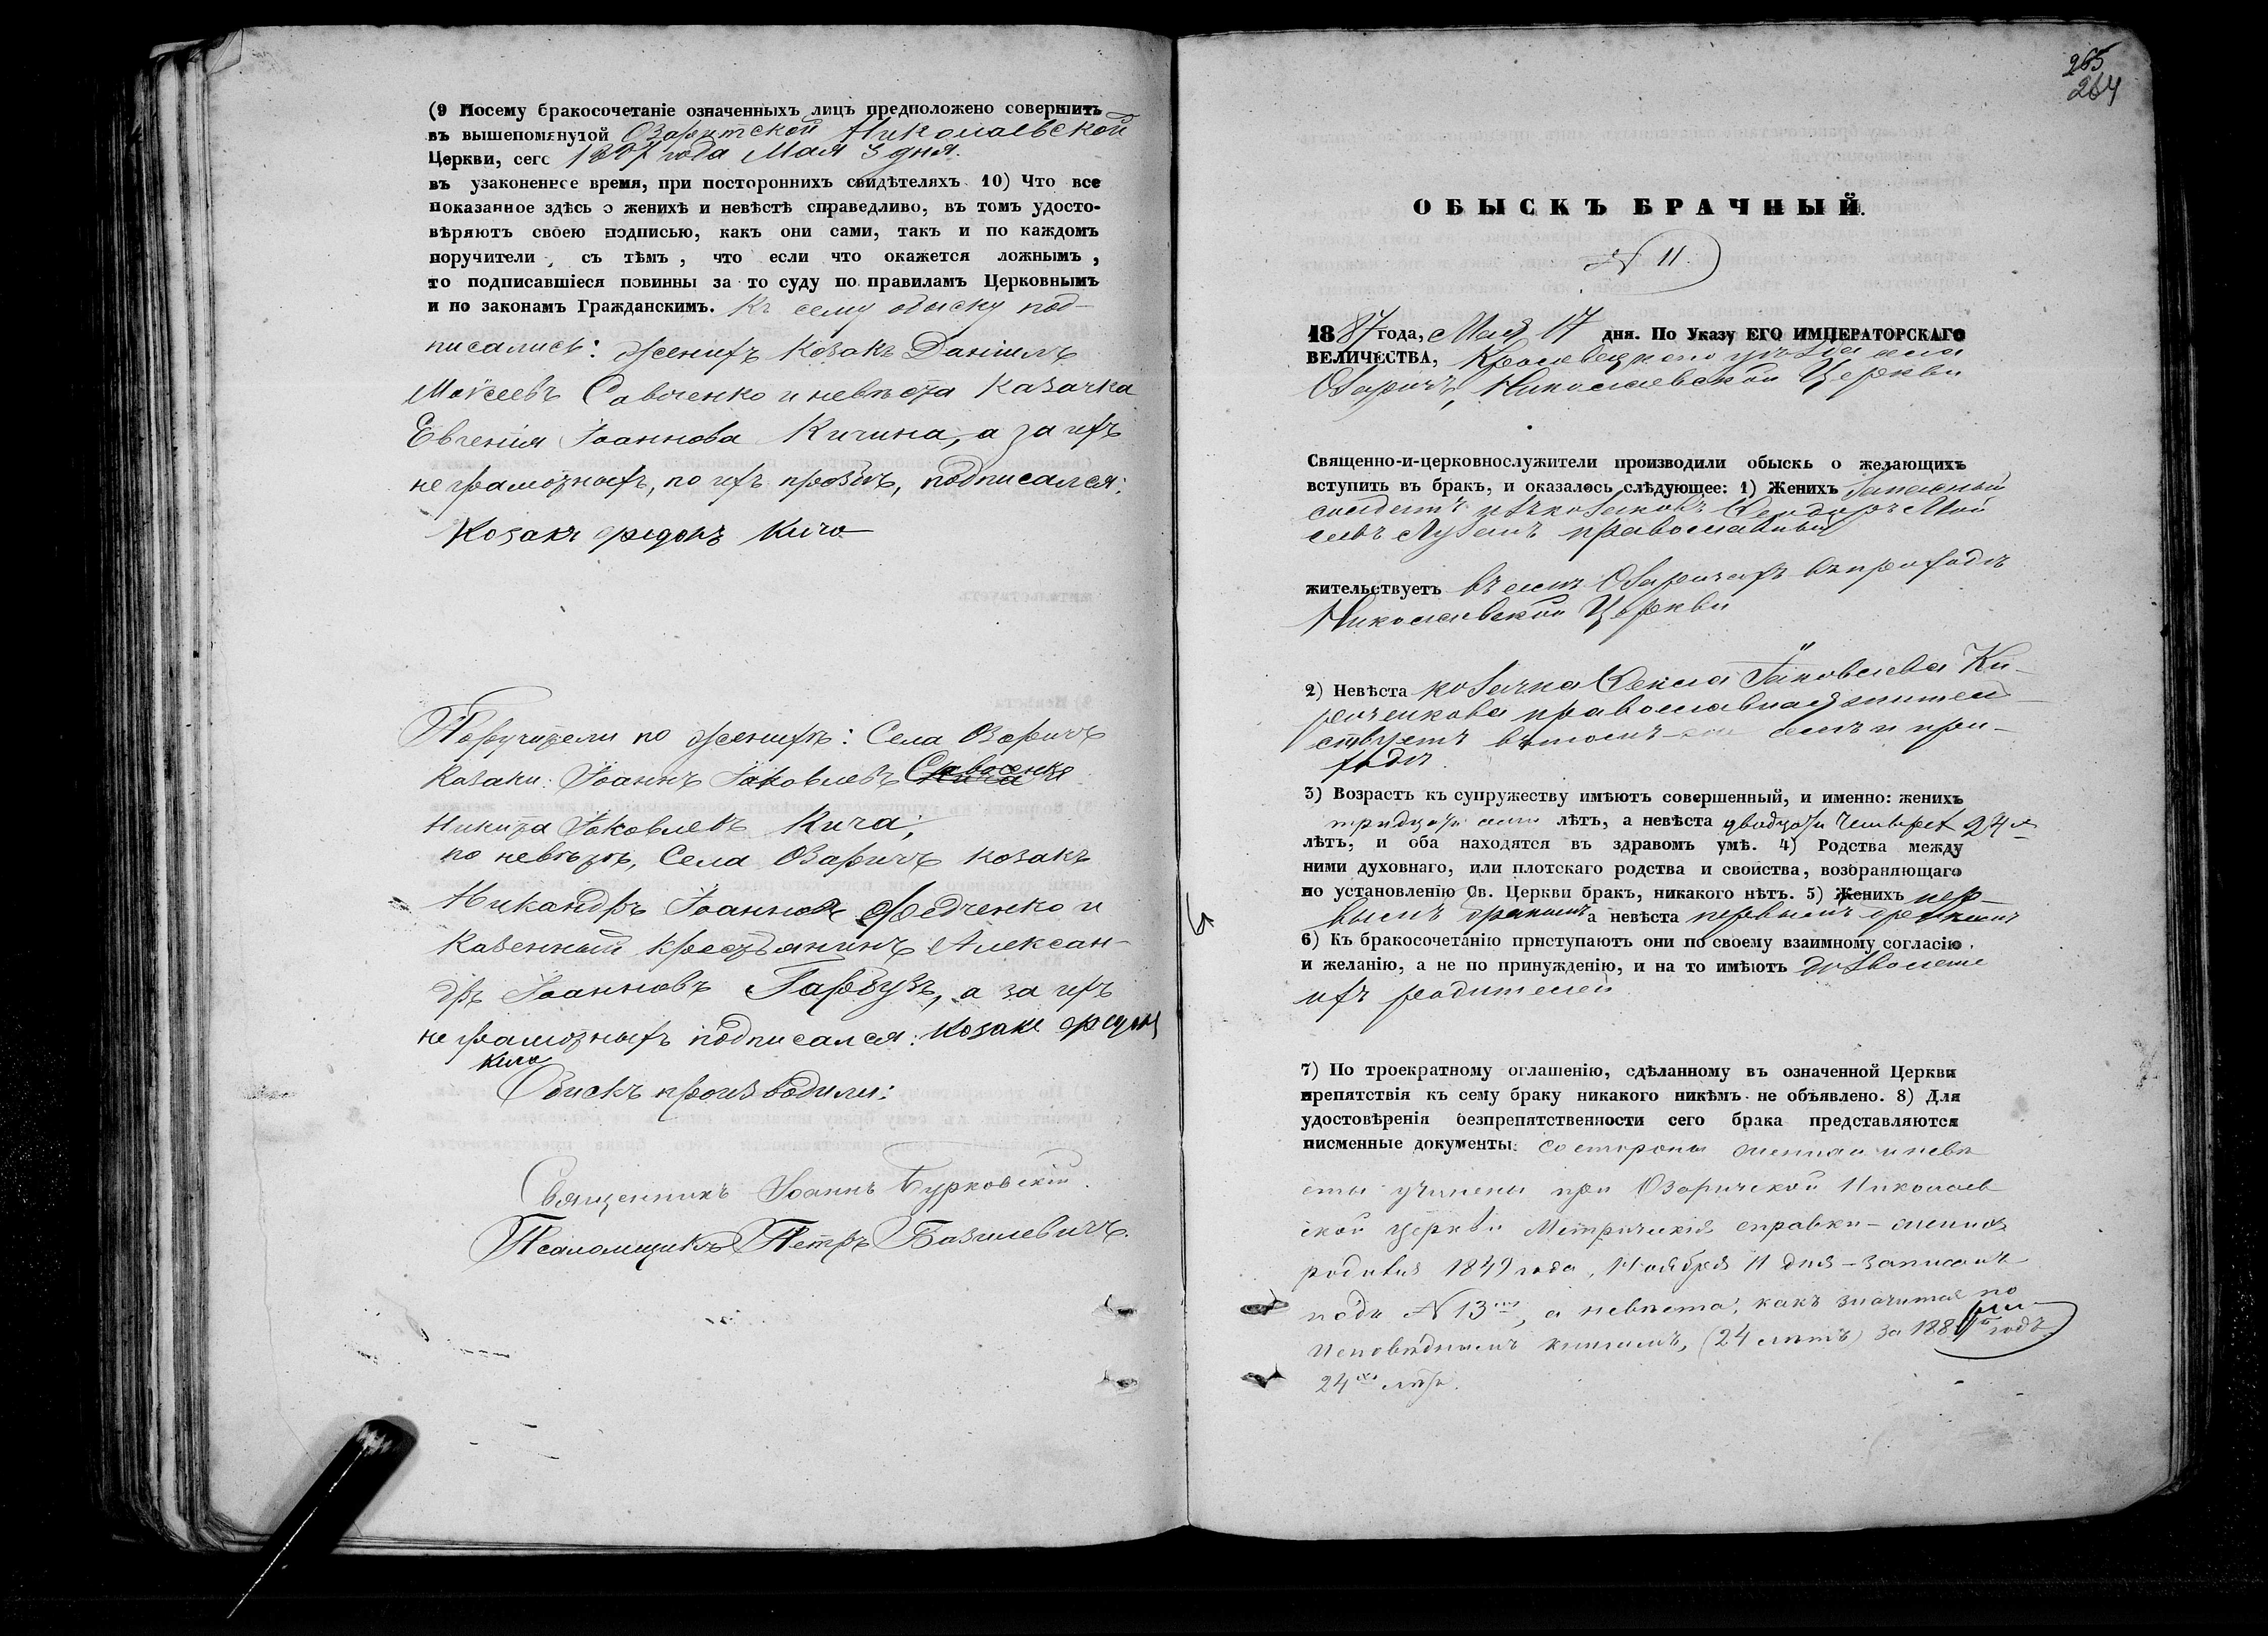 (9 Посему бракосочетаніе означенныхъ лицъ предположено совершить
въ вышепомянутой Озаритской Николаевской
Церкви, сего 1887 года Мая 3 дня.
въ узаконенное время, при постороннихъ свидѣтеляхъ 10) Что все
показанное здѣсь о женихѣ и невѣстѣ справедливо, въ томъ удосто-
вѣряютъ своею подписью, какъ они сами, такъ и по каждомъ
поручители, съ тѣмъ, что если что окажется ложнымъ,
то подписавшіеся повинны за то суду по правиламъ Церковнымъ
и по законамъ Гражданскимъ. Къ сему обыску под-
писались: женихъ козакъ Даніилъ
Моѵсеевъ Савоченко и невѣста казачка
Евгенія Іоаннова Кичина, а за ихъ
неграмотныхъ, по ихъ прозьбѣ, подписался:
Козакъ Федоръ Кича
Поручители по женихѣ: Села Озаричъ
казаки: Іоаннъ Іаковлевъ Савосенко
Никита Іаковлевъ Кича,
по невѣстѣ, Села Озаричъ козакъ
Никандръ Іоанновъ Федченко и
казенный крестьянинъ Алексан-
дръ Іоанновъ Гарбузъ, а за ихъ
неграмотныхъ подписался: Козакъ Федоръ
Кича
Обыскъ производили:
Священникъ Іоаннъ Бурковскій.
Псаломщикъ Петръ Базилевичъ.
265
264
ОБЫСКЪ БРАЧНЫЙ.
N 11.
1887 года, Мая 17 дня. По Указу ЕГО ИМПЕРАТОРСКАГО
ВЕЛИЧЕСТВА, Кролевецкаго уѣзда села
Озаричъ, Николаевской Церкви
Священно-и-церковнослужители производили обыскъ о желающихъ
вступить въ бракъ, и оказалось слѣдующее: 1) Женихъ Запасный
солдатъ изъ козаковъ Феодоръ Мой
сеевъ Лузанъ православный
жительствуетъ въ селѣ Озаричахъ въ приходѣ
Николаевской Церкви
2) Невѣста козачка Фекла Іаковлева Ки-
риченкова православная жител
ствуетъ въ томъ селѣ и при-
ходѣ.
3) Возрастъ къ супружеству имѣютъ совершенный, и именно: женихъ
тридцати семи лѣтъ, а невѣста двадцати четырех 24 х
лѣтъ, и оба находятся въ здравомъ умѣ. 4) Родства между
ними духовнаго, или плотскаго родства и свойства, возбраняющаго
по установленію Св. Церкви бракъ, никакого нѣтъ. 5) Женихъ пер-
вымъ бракомъ а невѣста первымъ бракомъ
6) Къ бракосочетанію приступаютъ они по своему взаимному согласію
и желанію, а не по принужденію, и на то имѣютъ дозволеніе
ихъ родителей
7) По троекратному оглашенію, сдѣланному въ означенной Церкви
препятствія къ сему браку никакого никѣмъ не объявлено. 8) Для
удостовѣренія безпрепятственности сего брака представляются
писменные документы: со стороны жениха и невѣ
сты учинены при Озаричской Николаев
ской церкви Метрическія справки – женихъ
родился 1849 года, Ноября 11 дня – записанъ
подъ N 13 мъ, а невѣста, какъ значится по
Исповѣднымъ книгамъ, (24 лѣтъ) за годъ
24 хъ лѣтъ.